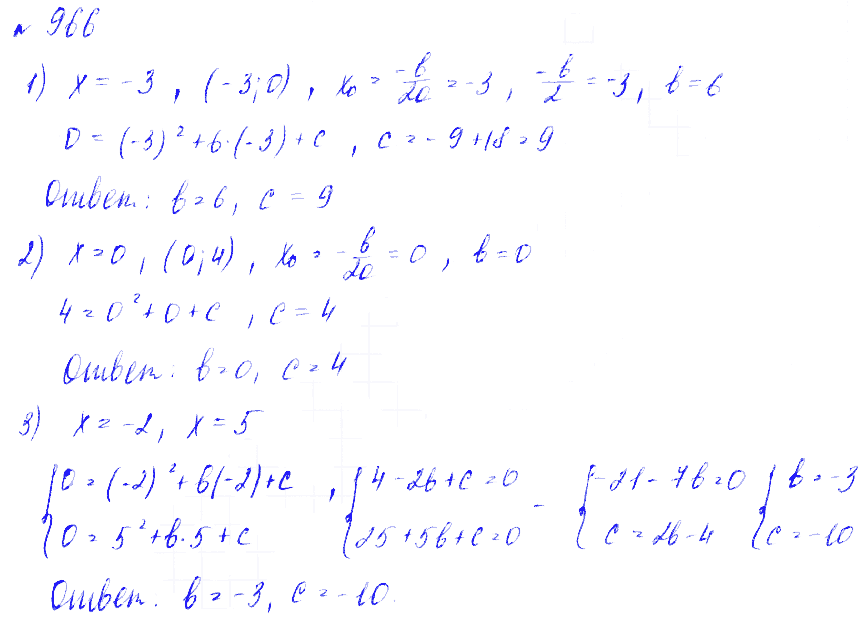 № 966
1) x = -3, (-3; 0), x₀ = -b/2a = -3, -b/2 = -3, b = 6
0 = (-3)² + 6·(-3) + c, c = -9 + 18 = 9
Ответ: b = 6, c = 9
2) x = 0, (0; 4), x₀ = -b/2a = 0, b = 0
4 = 0² + 0 + c, c = 4
Ответ: b = 0, c = 4
3) x = -2, x = 5
{0 = (-2)² + b(-2) + c, {4 - 2b + c = 0 - {-21 - 7b = 0 {b = -3
{0 = 5² + b·5 + c {25 + 5b + c = 0 {c = 2b - 4 {c = -10
Ответ. b = -3, c = -10.